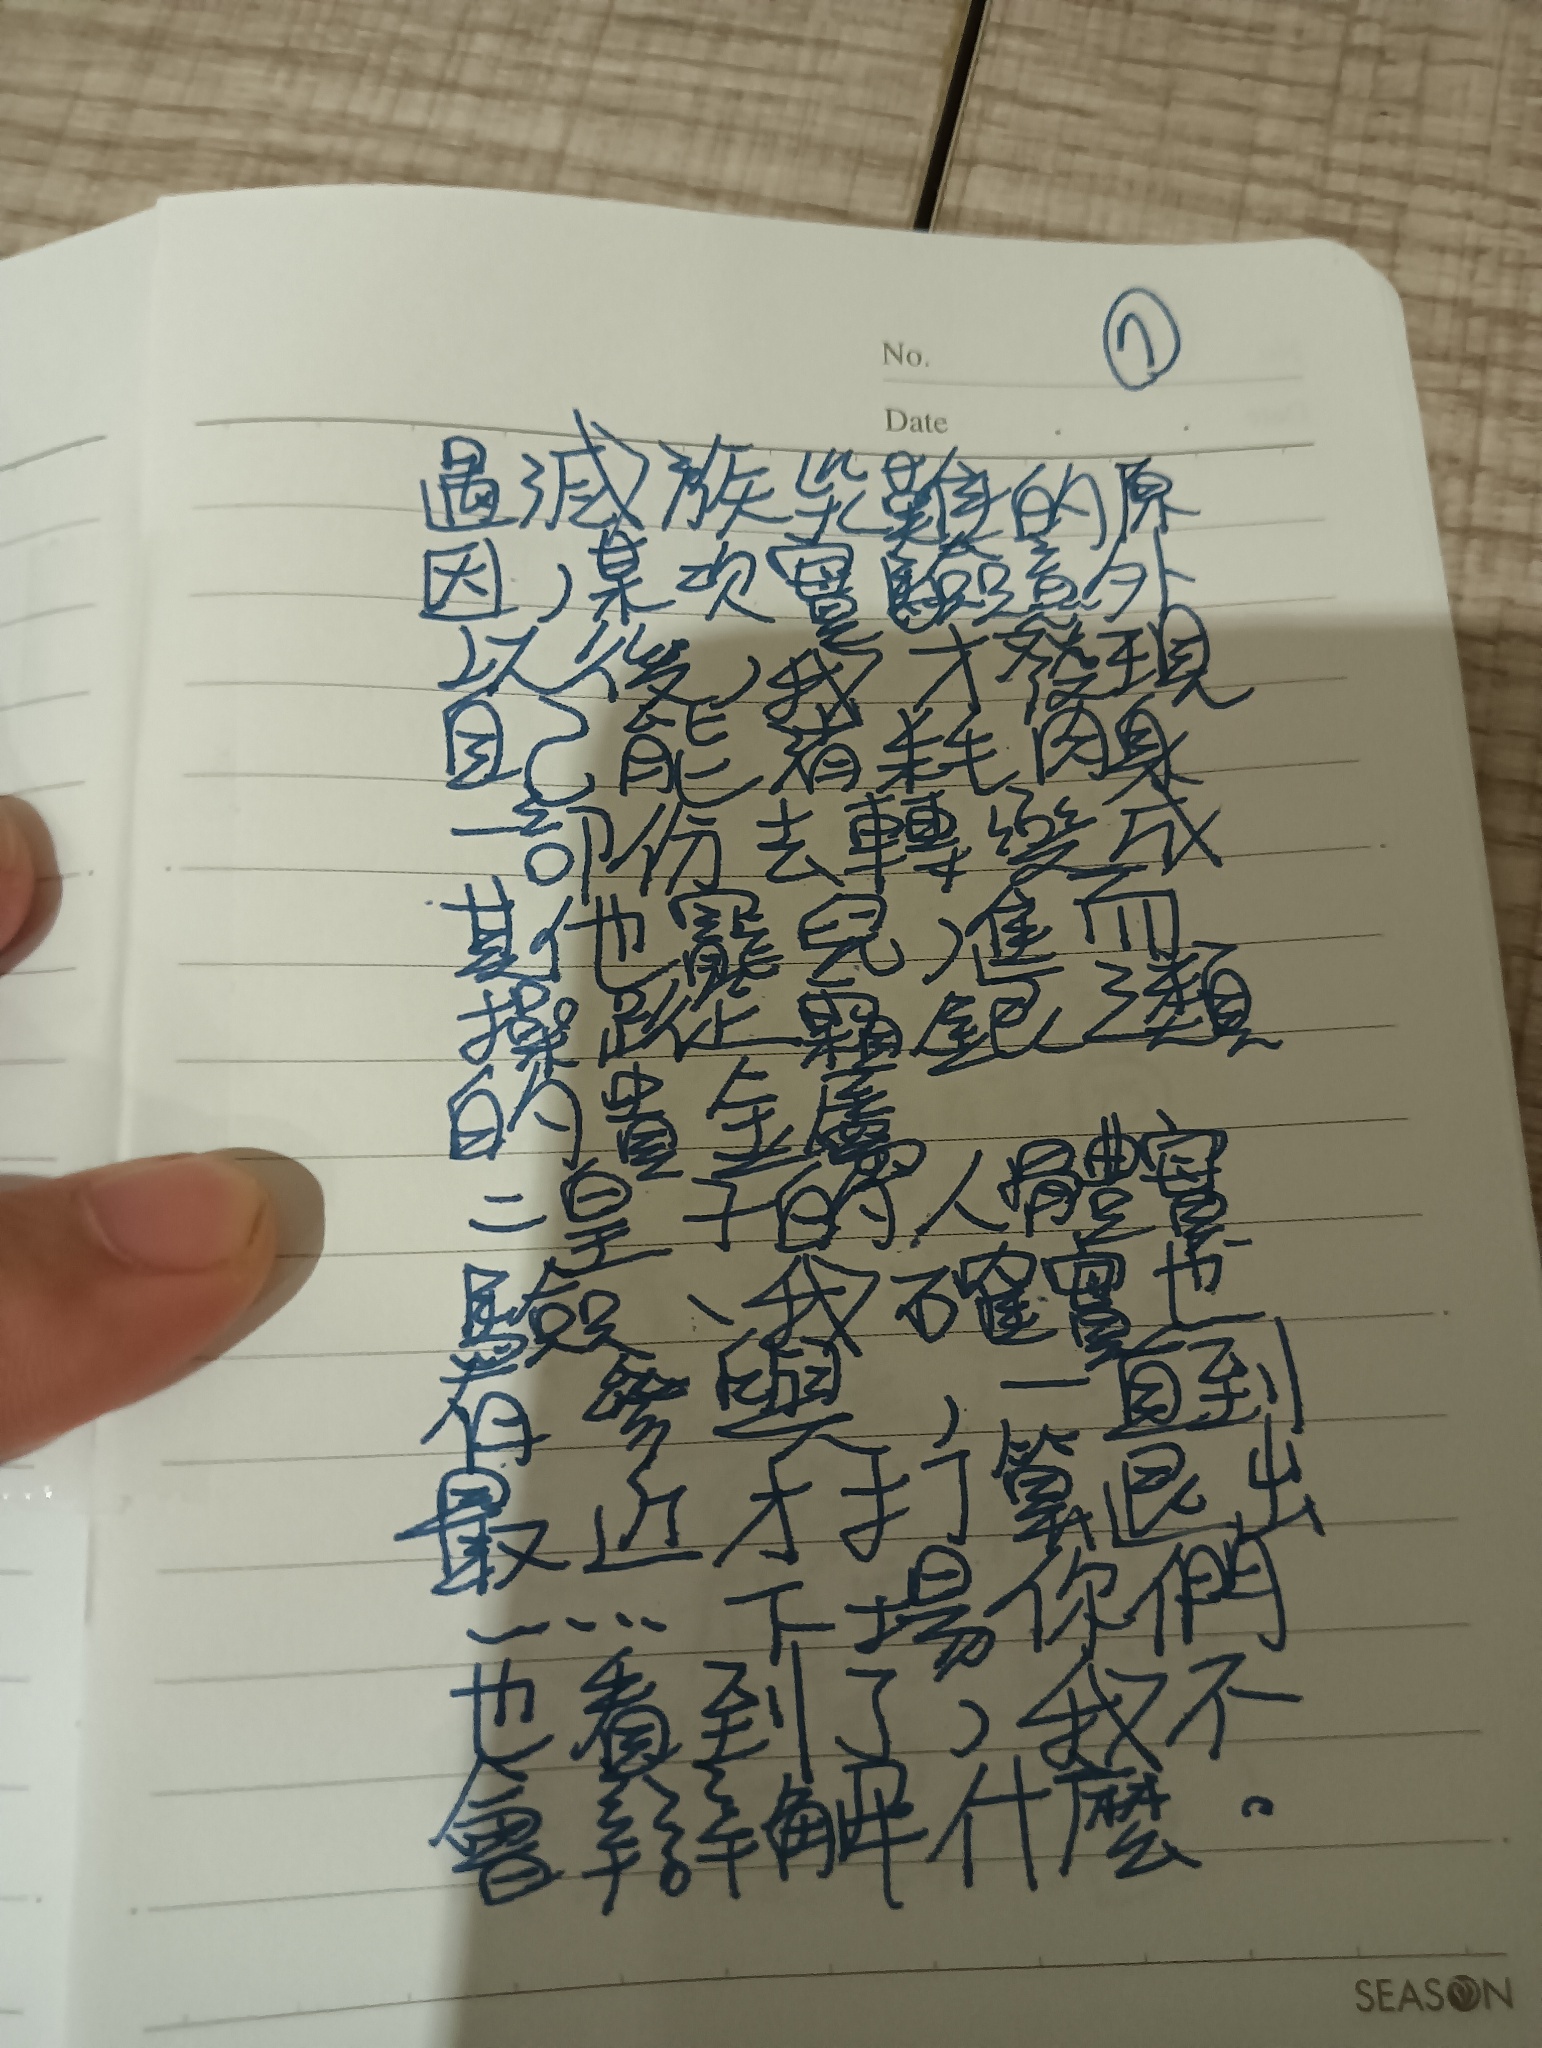 No. ⑦
Date
過滅族災難的原
因,某次實驗意外
以後,我才發現
自己能消耗肉身
一部份去轉變成
其他寵兒,進而
操縱類銀之類
的貴金屬
二皇子的人體實
驗、我不確實也
有參與,一直到
最近才打算退出
……下場你們
也看到了,我不
會辯解什麼。
SEASON